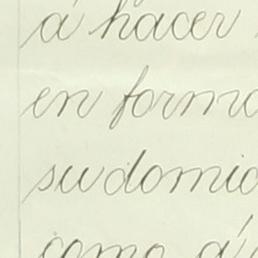 á hacer
en forma
su domic
como á